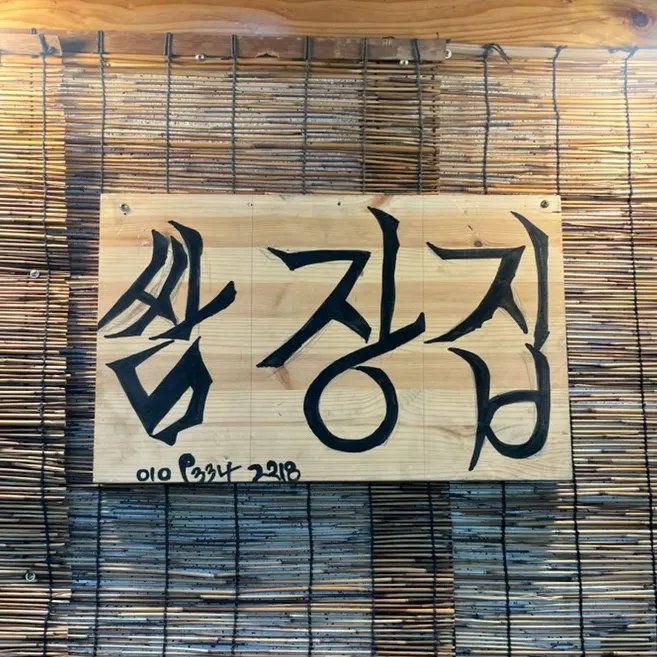 쌈장집
010 9334 2218